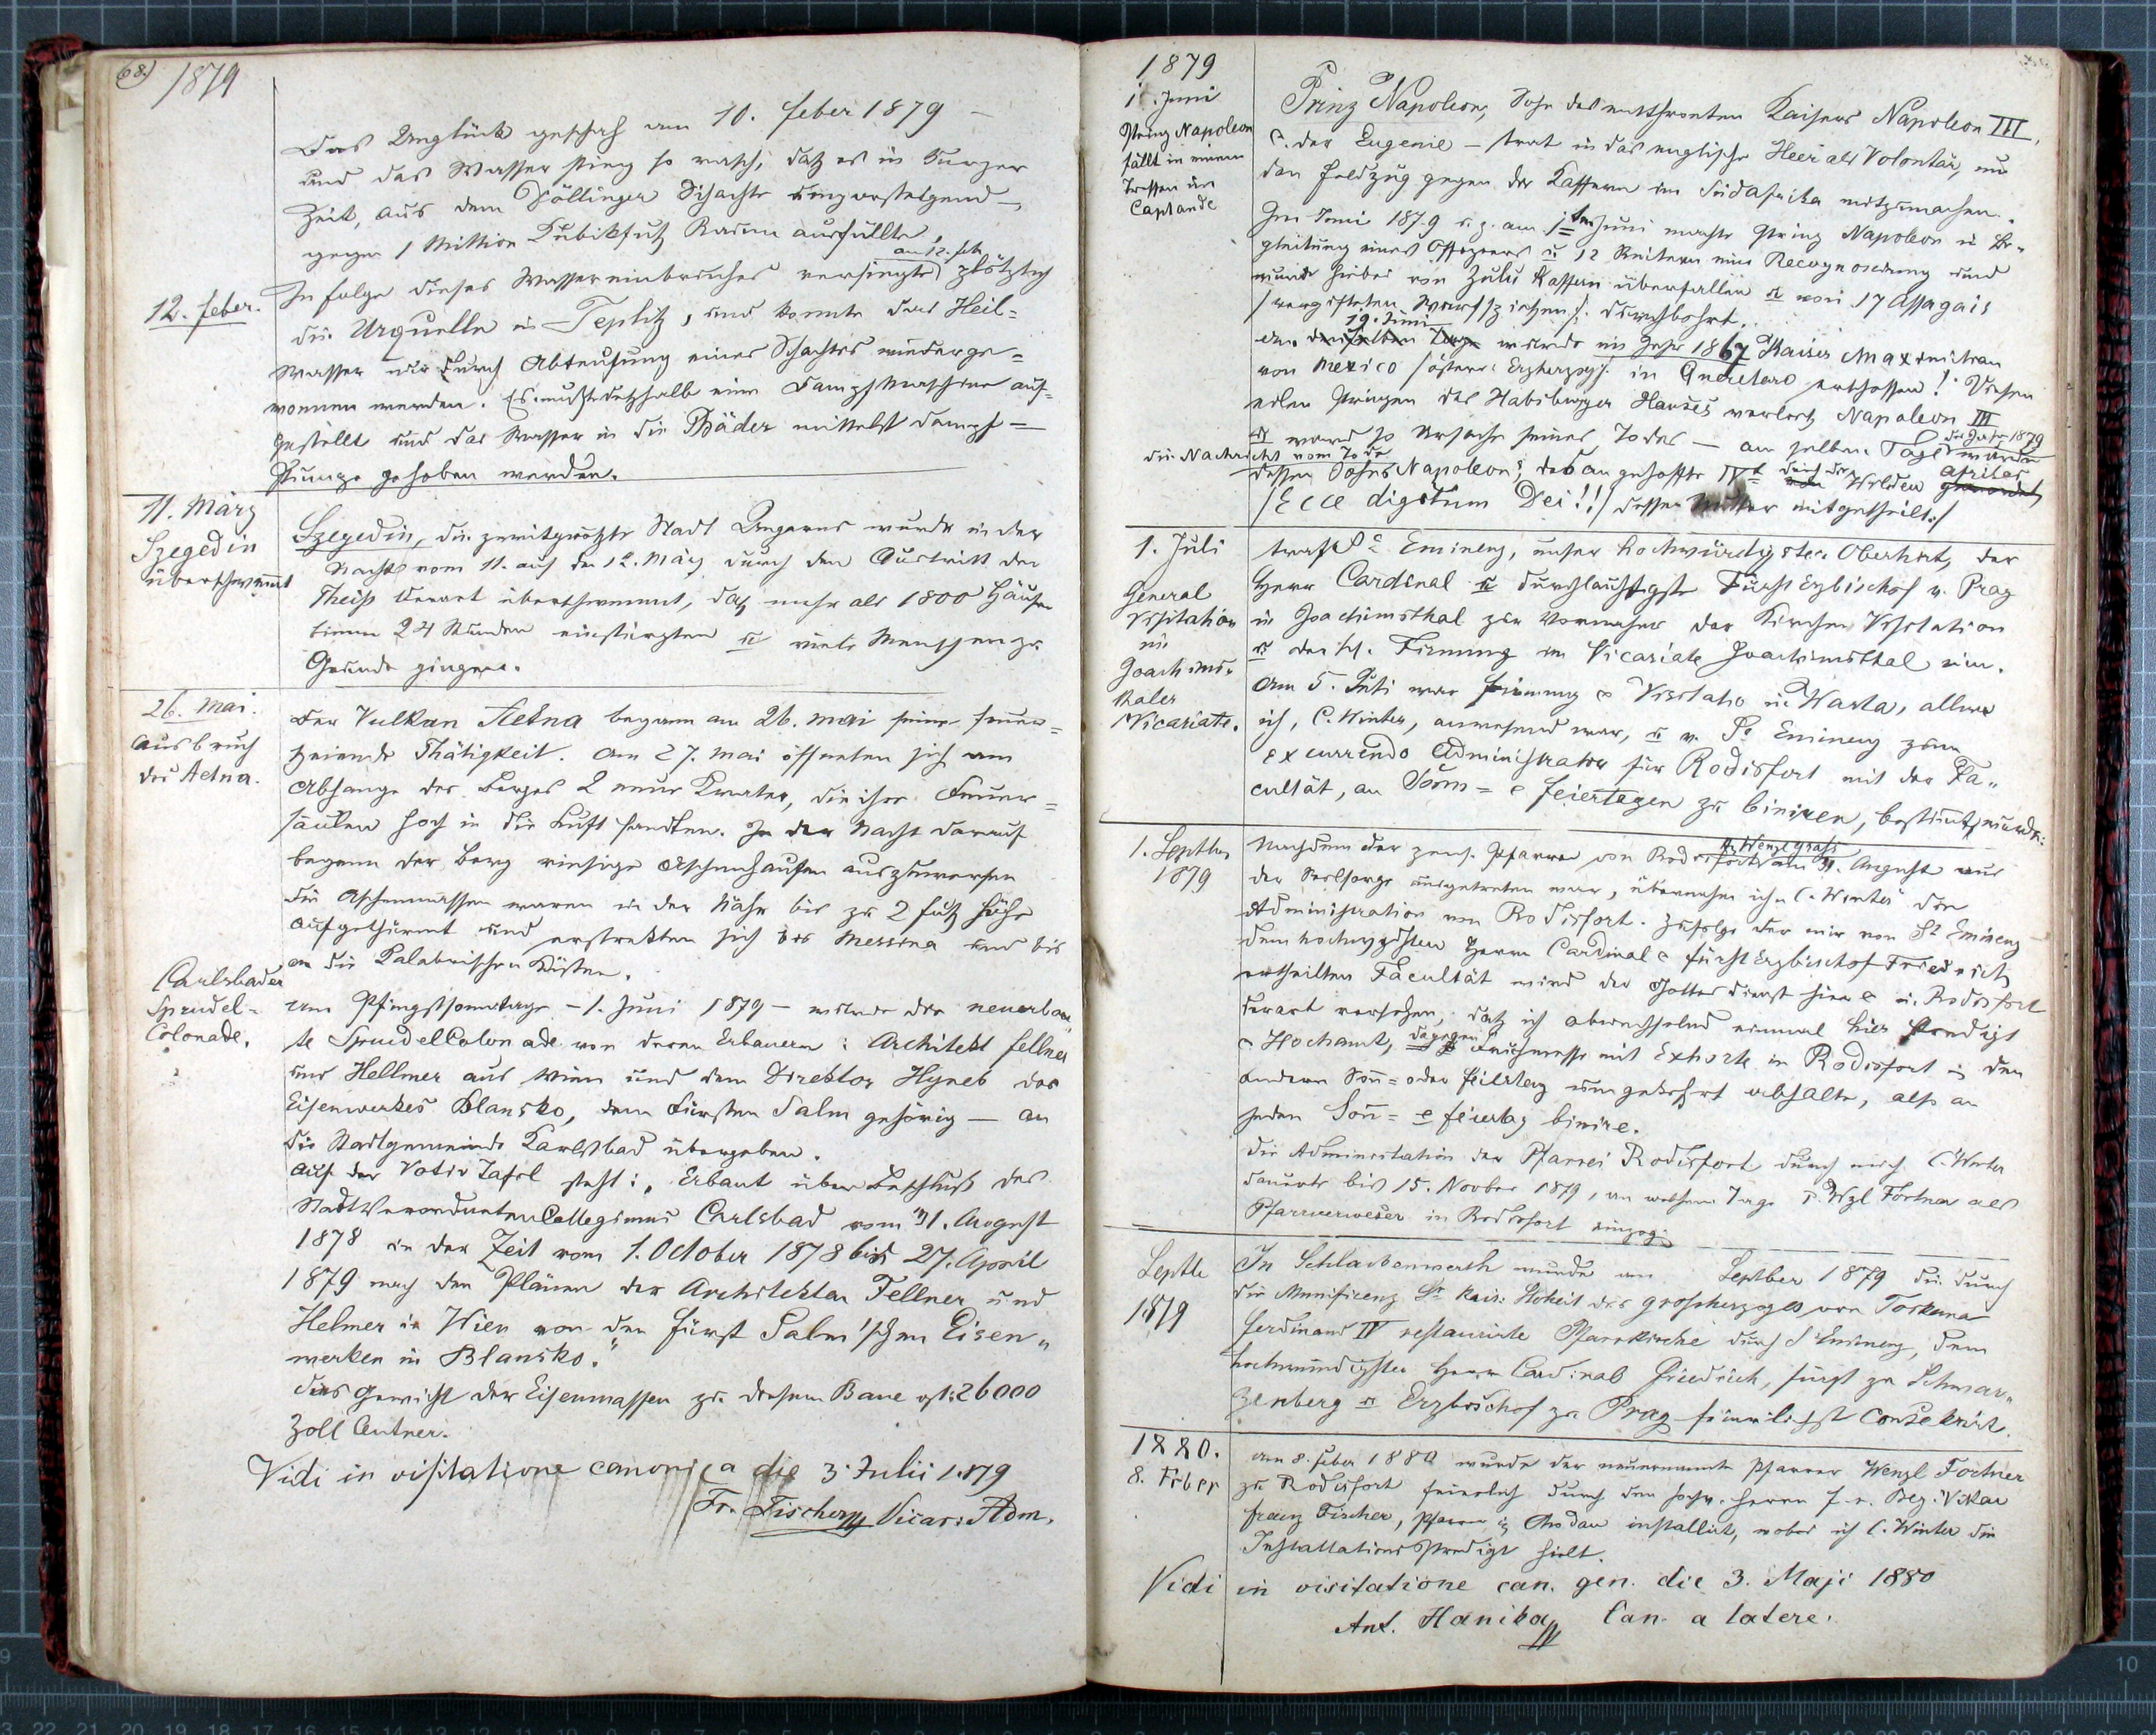 68.)
1879
Das Unglück geschah am 10. feber 1879 –
und das Wasser stieg so rasch, daß es in kurzer
Zeit, aus dem Döllinger Schachte emporsteigend –,
gegen 1 Million Kubikfuß Raum ausfüllte.
12. feber.
In folge dieses Wassereinbruches versiegte am 12. feb. plötzlich
die Urquelle in Teplitz, und konnte das Heil=
wasser nur durch Abteufung eines Schachtes wiederge=
wonnen werden. Es mußte deßhalb eine Dampfmaschine auf=
gestellt und das Wasser in die Bäder mittelst Dampf=
pumpe gehoben werden.
11. März
Szegedin
überschwemmt
Szegedin, die zweitgrößte Stadt Ungarns wurde in der
Nacht vom 11. auf den 12. März durch den Austritt der
Theiß derart überschwemmt, daß mehr als 1800 Häuser
binnen 24 Stunden einstürzten u viele Menschen zu
Grunde gingen.
26. Mai.
Ausbruch
des Aetna.
Der Vulkan Aetna begann am 26. Mai seine feuer=
speiende Thätigkeit. Am 27. Mai öffneten sich am
Abhange des Berges 2 neue Krater, die ihre Feuer=
säulen hoch in die Luft sandten. In der Nacht darauf
begann der Berg riesige Aschenhaufen auszuwerfen
die Aschenmassen waren in der Nähe bis zu 2 fuß Höhe
aufgethürmt und erstreckten sich bis Messina und bis
an die Kalabrischen Küsten.
Carlsbader
Sprudel=
Colonade.
Am Pfingstsonntage – 1. Juni 1879 – wurde die neuerbau„
te SprudelColonade von deren Erbauern: Architekt fellner
und Hellmer aus Wien und dem Direktor Hyneb des
Eisenwerkes Blansko, dem Fürsten Salm gehörig – an
die Stadtgemeinde Karlsbad übergeben.
Auf der Votiv Tafel steht: „Erbaut über Beschluß des
StadtverordnetenCollegiums Carlsbad vom 31. August
1878 in der Zeit vom 1. October 1878 bis 27. April
1879 nach den Plänen der Architekten Fellner und
Helmer in Wien von den Fürst Salm'schen Eisen„
werken in Blansko."
Das Gewicht der Eisenmassen zu diesem Baue ist: 26000
Zoll Centner.
Vidi in visitatione canonica die 3 Julii 1879
Fr. Fischer Vicar: Adm.
1879
1. Juni
Prinz Napoleon
fällt in einem
Treffen im
Caplande
Prinz Napoleon, Sohn des entthronten Kaisers Napoleon III,
u. der Eugenie – trat in das englische Heer als Volontär, um
den Feldzug gegen die Kaffern in Südafrika mitzumachen.
Im Juni 1879 u. z. am 1ten Juni machte Prinz Napoleon in Be„
gleitung eines Offiziers u 12 Reitern eine Recognoscirung und
wurde hiebei von Zulu Kaffern überfallen u von 17 Assagais
/vergifteten Wurfspießen/ durchbohrt.
19. Juni
An demselben Tage wurde im Jahre 1867 Kaiser Maximilian
von Mexico /österr: Erzherzog/ in Queretaro erschossen! Diesen
edlen Prinzen des Habsburger Hauses verließ Napoleon III
u ward so Ursache seines Todes – am selben Tage des Jahres 1879 wurde
die Nachricht vom Tode
dessen Sohnes Napoleon's, des angehoffte IVt durch die Wilden Afrikas gemordet
/Ecce digitum Dei!!/ dessen Mutter mitgetheilt./
1. Juli
General
Visitation
im
Joachims„
thaler
Vicariate.
traf Se Eminenz, unser hochwürdigster Oberhirt, der
Herr Cardinal u durchlauchtigste Fürst Erzbischof v. Prag
in Joachimsthal zur Vornahme der Kirchen Visitation
u der hl. Firmung im Vicariate Joachimsthal ein.
Am 5. Juli war Firmung u Visitatio in Warta, allwo
ich, C. Winter, anwesend war, u v. Sr Eminenz zum
excurrendo Administrator für Rodisfort mit der Fa„
cultät, an Sonn= u feiertagen zu biniren, bestimt wurde.
1. Septbr
1879
Nachdem der pens. Pfarrer von Rodisfort H. Wenzl Grass am 31. August aus
der Seelsorge ausgetreten war, übernahm ich C. Winter die
Administration von Rodisfort. Zufolge der mir von Sr Eminenz
dem hochwgdsten Herrn Cardinal u fürst Erzbischof Friedrich
ertheilten Facultät wird der Gottesdienst hier u in Rodisfort
derart versehen, daß ich abwechselnd einmal hier Predigt
u Hochamt, dagegen Frühmesse mit Exhorte in Rodisfort u den
andern Son= oder feiertag umgekehrt abhalte, also an
jeden Son= u feiertag binire.
Die Administration der Pfarrei Rodisfort durch mich C. Winter
dauerte bis 15. Novber 1879, an welchem Tage P. Wzl Fortner als
Pfarrverweser in Rodisfort einzog.
Septbr
1879
In Schlackenwerth wurde am Septber 1879 die durch
die Munificenz Sr kais: Hoheit des Grosherzoges von Toskana
Ferdinand IV restaurirte Pfarrkirche durch Se Eminenz, dem
hochwürdigsten Herrn Cardinal Friedrich, fürst zu Schwar„
zenberg u Erzbischof zu Prag feierlichst consekrirt.
1880.
8. Feber
Am 8. feber 1880 wurde der neuernannte Pfarrer Wenzl Fortner
zu Rodisfort feierlich durch den hochw. Herrn Bez. Vikar
Franz Fischer, Pfarrer in Chodau installirt, wobei ich C. Winter die
Installations Predigt hielt.
Vidi in visitatione can. gen. die 3. Maji 1880
Ant. Hanika Can. a latere.